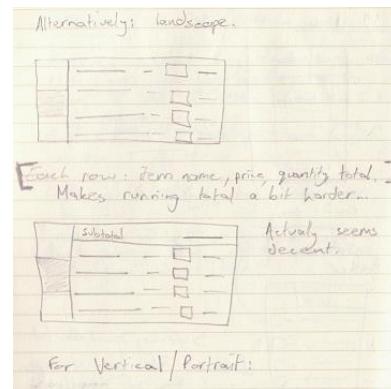 Alternatively: landscape.
Each row: item name, price, quantity total.
Makes running total a bit harder...
Subtotal
Actually seems
decent.
For Vertical/Portrait: